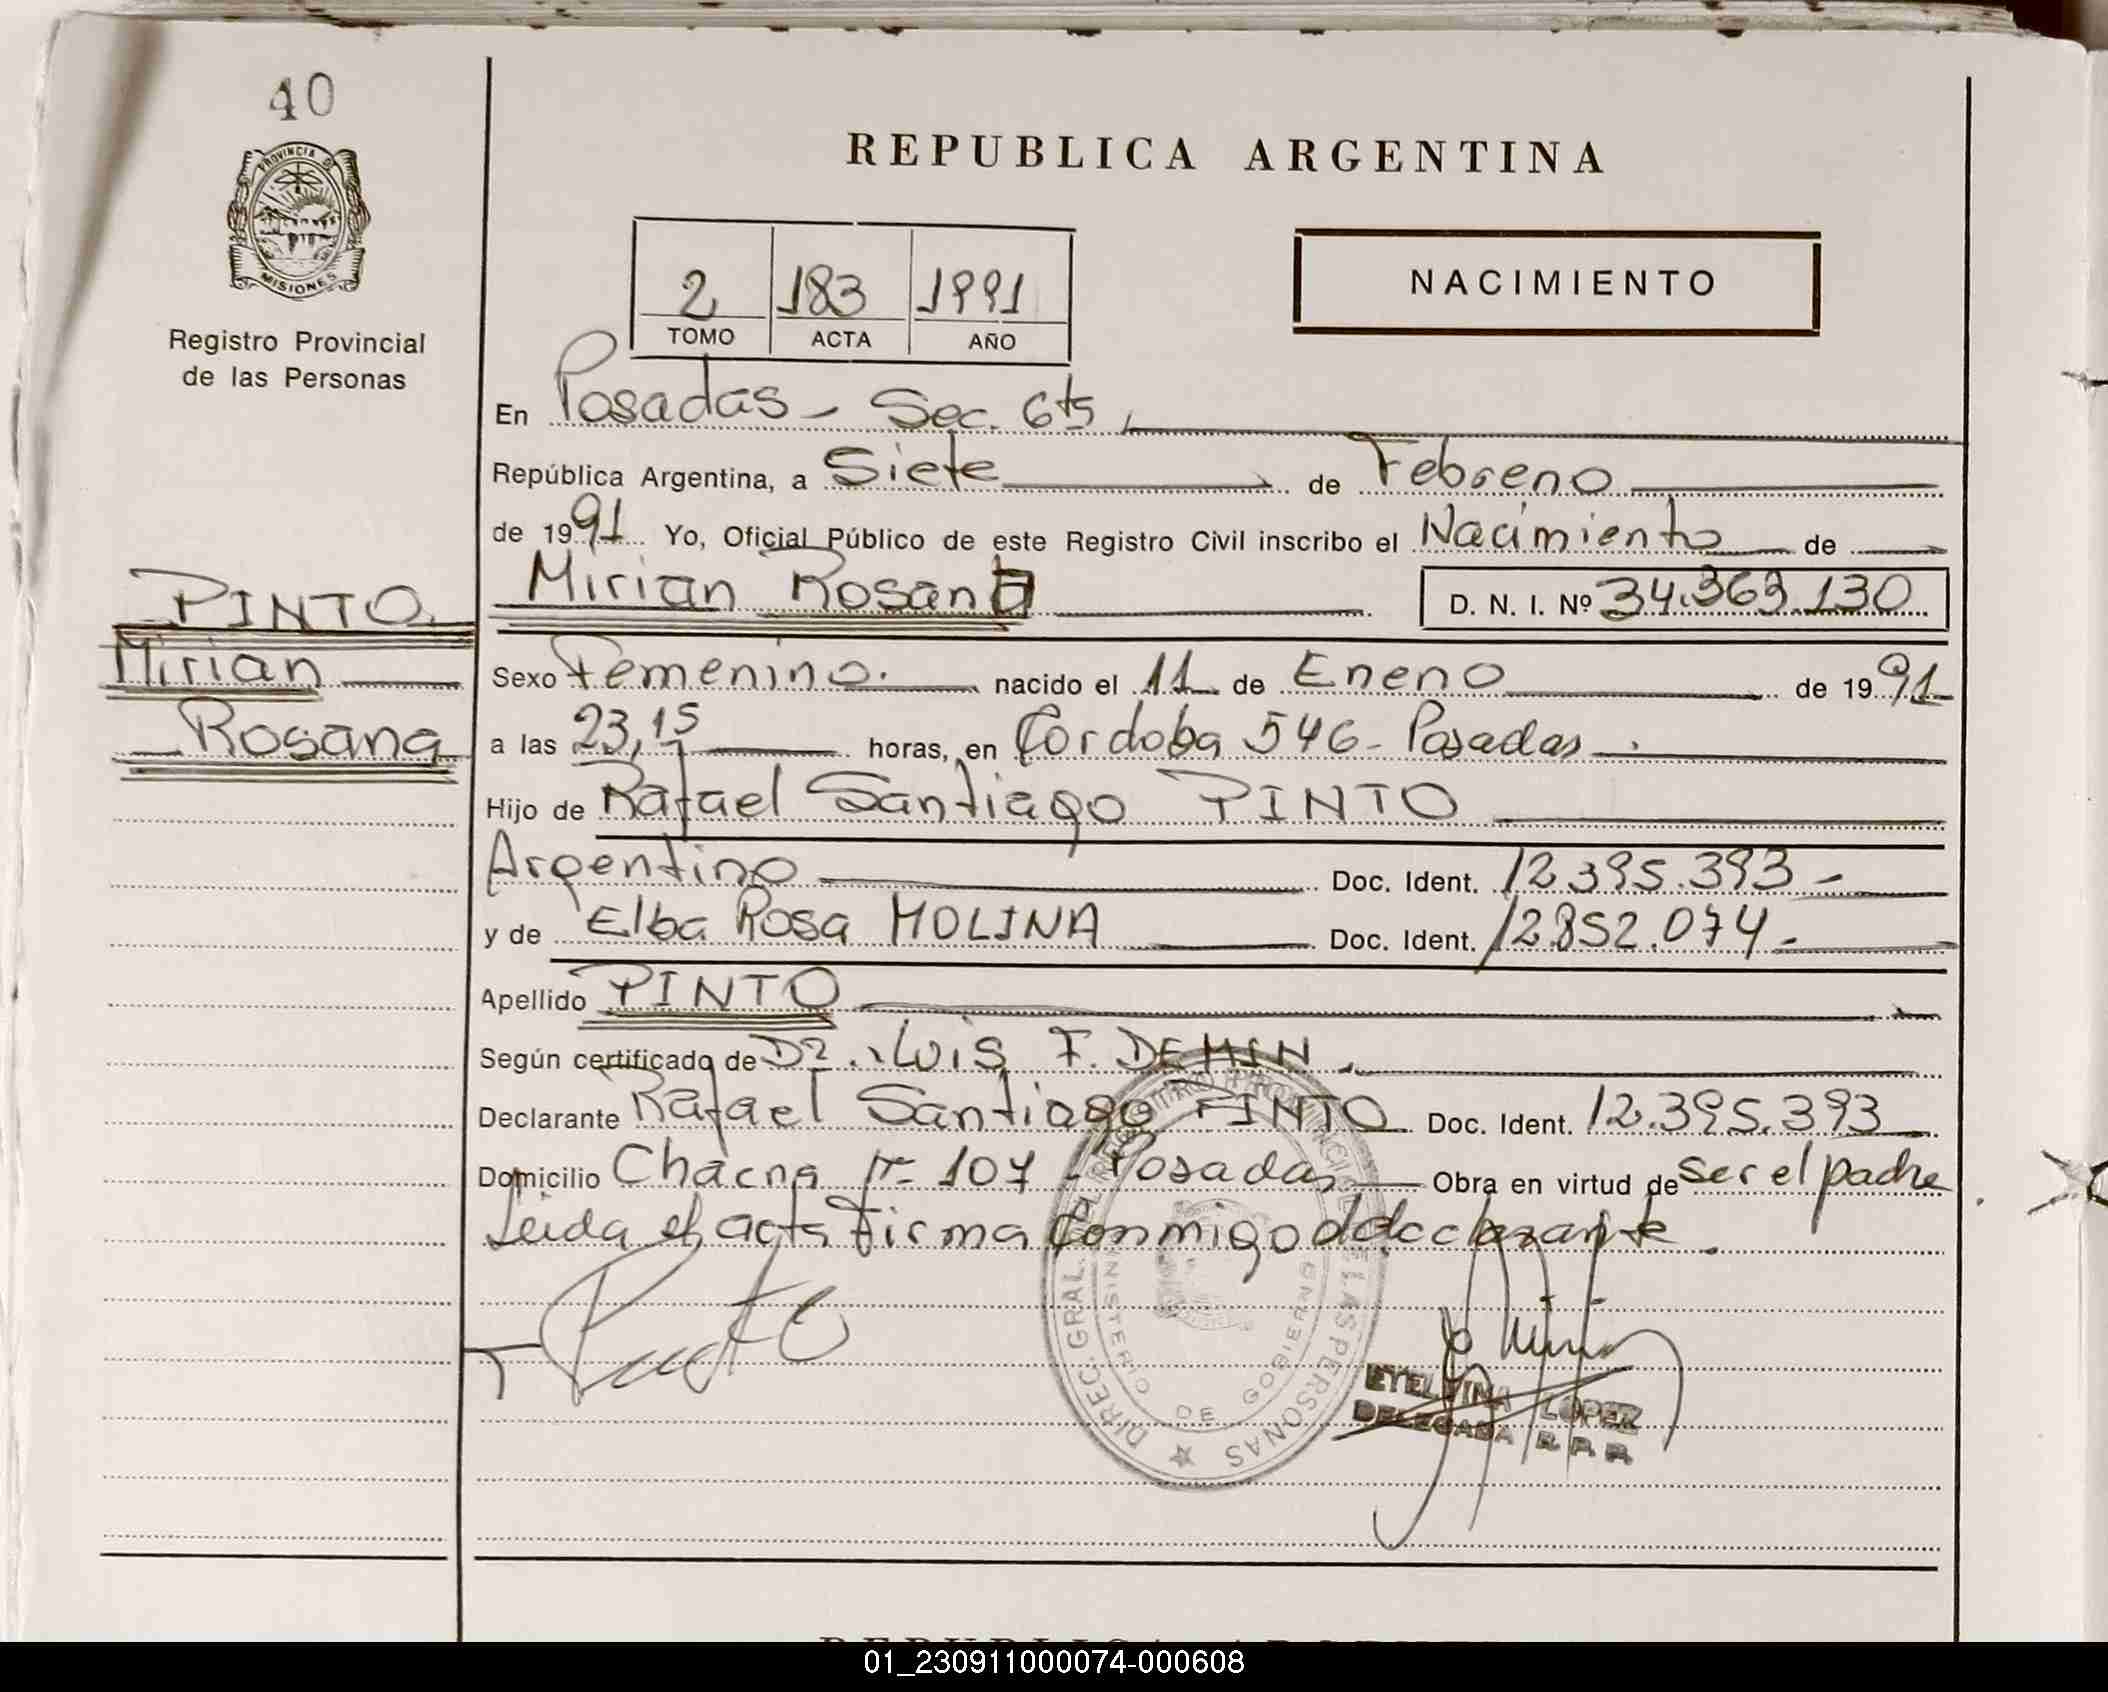 40
PROVINCIA D
MISIONES
Registro Provincial
de las Personas
REPUBLICA ARGENTINA
2 183 1991
TOMO ACTA AÑO
NACIMIENTO
En Posadas - Sec. 6ta
República Argentina, a Siete de Febrero
de 1991 Yo, Oficial Público de este Registro Civil inscribo el Nacimiento de
Mirian Rosana D. N. I. Nº 34.363.130
PINTO
Mirian
Rosana
Sexo Femenino. nacido el 11 de Enero de 1991
a las 23,15 horas, en Córdoba 546 - Posadas
Hijo de Rafael Santiago PINTO
Argentino Doc. Ident. 12.395.393 -
y de Elba Rosa MOLINA Doc. Ident. 12.852.074 -
Apellido PINTO
Según certificado de Dr. Luis F. DEMIN
Declarante Rafael Santiago PINTO Doc. Ident. 12.395.393
Domicilio Chacra Nº 107 - Posadas Obra en virtud de ser el padre
Leida el acta firma conmigo el declarante.
DIREC. GRAL. DEL REGISTRO PROVINCIAL DE LAS PERSONAS
MINISTERIO DE GOBIERNO
ETELVINA LOPEZ
DELEGADA R. P. P.
01_230911000074-000608